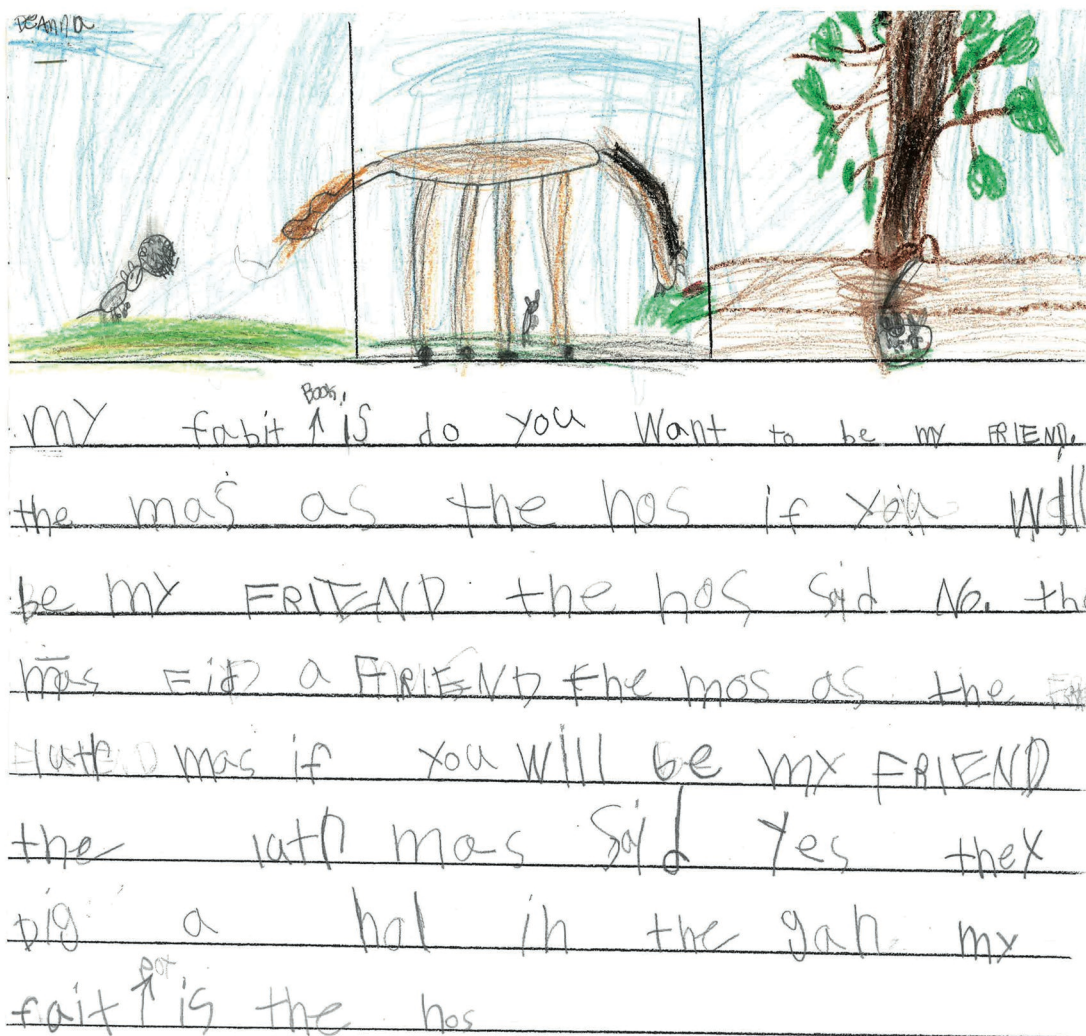 DeAnna
Book.
My fabit ↑ is do you Want to be my FRIEND.
the mas as the hos if you Will
be my FRIEND the hos Said No. the
mas Fid a FRIEND the mos as the
latl mas if you Will be my FRIEND
the latl mas Said Yes they
Dig a hol in the gan my
pot
fait ↑ is the hos